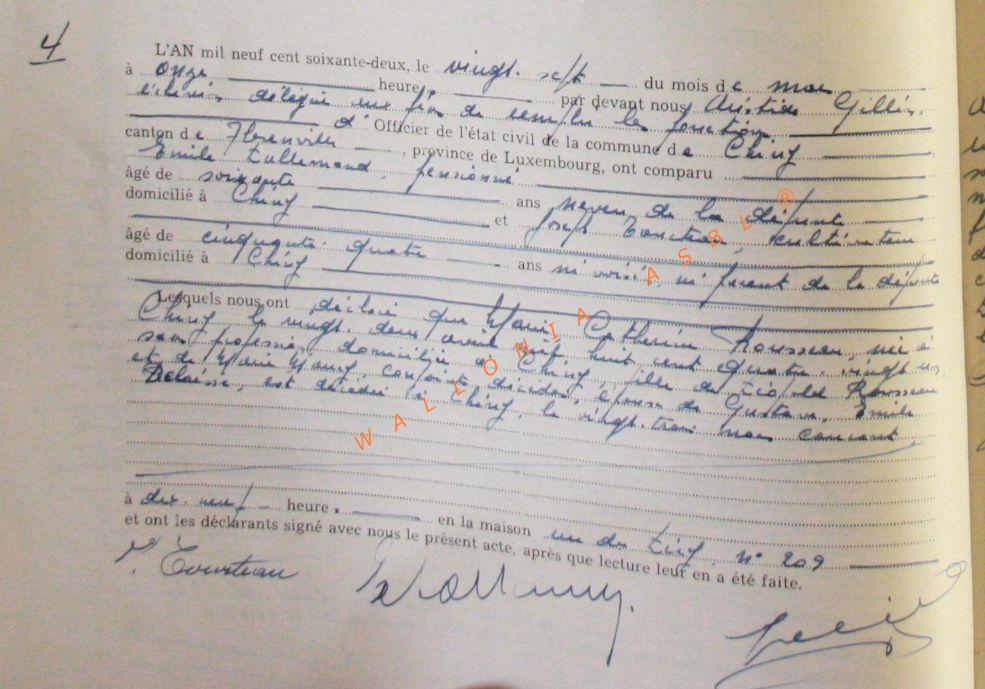 4
L'AN mil neuf cent soixante-deux, le vingt-sept du mois de mars
à onze heures, par devant nous Aristide Gillis,
échevin délégué aux fins de remplir les fonctions
d' Officier de l'état civil de la commune de Chiny
canton de Florenville, province de Luxembourg, ont comparu
Emile Lallemand, pensionné
âgé de soixante ans neveu de la défunte
domicilié à Chiny et Joseph Tourteau, cultivateur
âgé de cinquante-quatre ans ni voisin, ni parent de la défunte
domicilié à Chiny
Lesquels nous ont déclaré que Marie Catherine Rousseau, née à
Chiny, le vingt-deux avril mil huit cent quatre-vingt un
sans profession, domiciliée à Chiny, fille de Léopold Rousseau
et de Marie conjoints, décédés, épouse de Gustave, Emile
est décédée à Chiny, le vingt-trois mars courant
à dix-neuf heures, en la maison n° 209
et ont les déclarants signé avec nous le présent acte, après que lecture leur en a été faite.
J. Tourteau
WALLONIA ASBL®